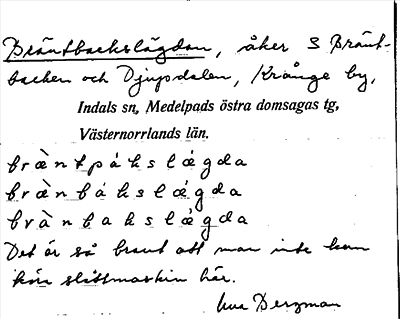 Bräntbackslägdan, åker S Bränt-
backen och Djupdalen, Krånge by,
Indals sn, Medelpads östra domsagas tg,
Västernorrlands län.
bræ̀ntpákslǽgda
bræ̀nbákslǽgda
bræ̀nbakslǽgda
Det är så brant att man inte kan
köra slåttmaskin här.
Bergman